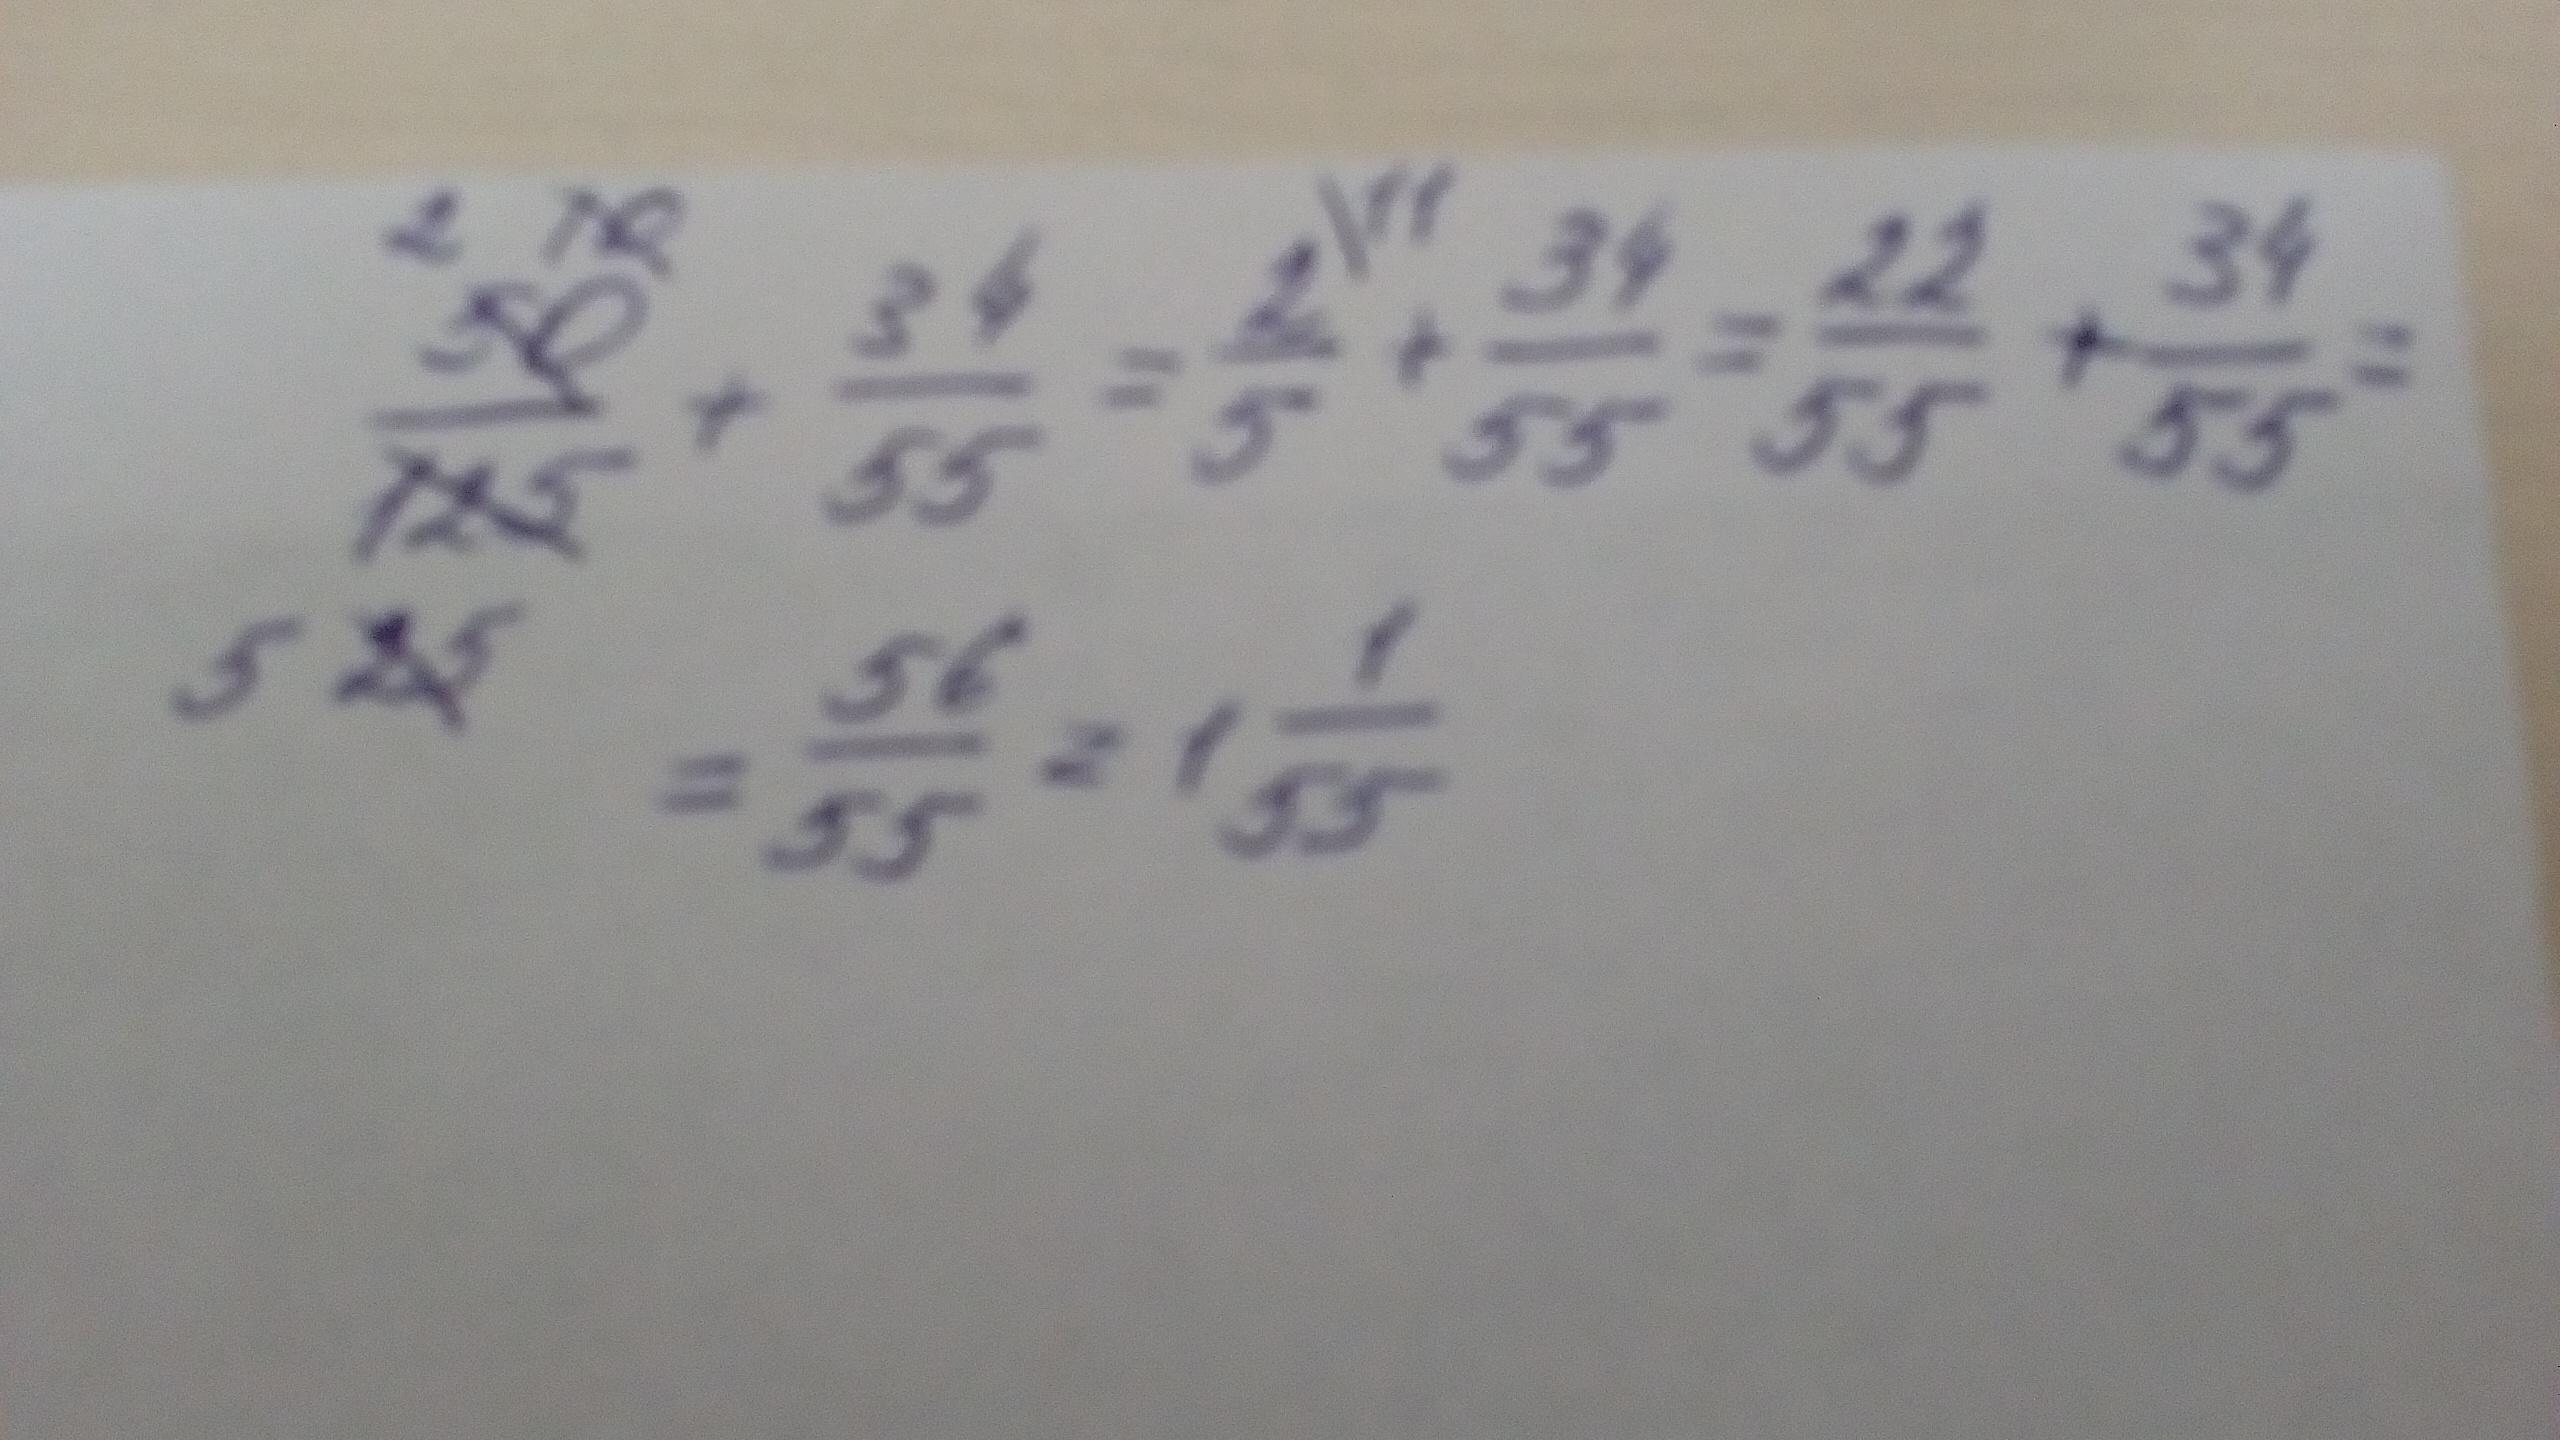 2 10
50/125 + 34/55 = 2/5 \11 + 34/55 = 22/55 + 34/55 =
5 25
= 56/55 = 1 1/55